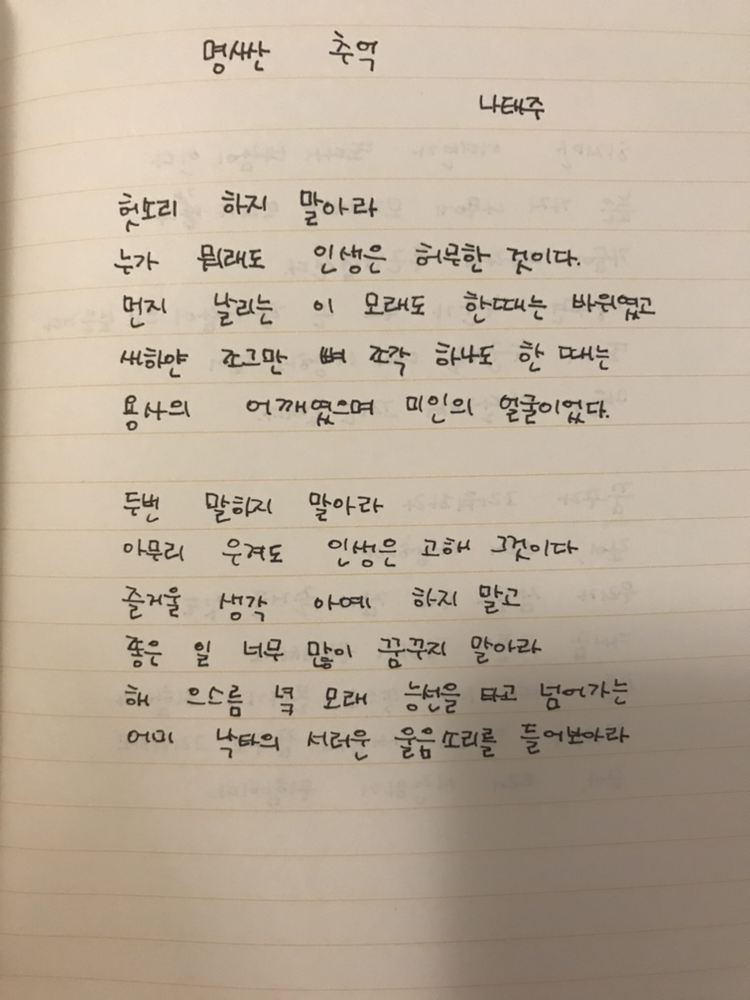 명사산 추억
나태주
헛소리 하지 말아라
누가 뭐래도 인생은 허무한 것이다.
먼지 날리는 이 모래도 한때는 바위였고
새하얀 조그만 뼈 조각 하나도 한 때는
용사의 어깨였으며 미인의 얼굴이었다.
두번 말하지 말아라
아무리 우겨도 인생은 고해 그것이다
즐거울 생각 아예 하지 말고
좋은 일 너무 많이 꿈꾸지 말아라
해 으스름 녘 모래 능선을 타고 넘어가는
어미 낙타의 서러운 울음소리를 들어보아라